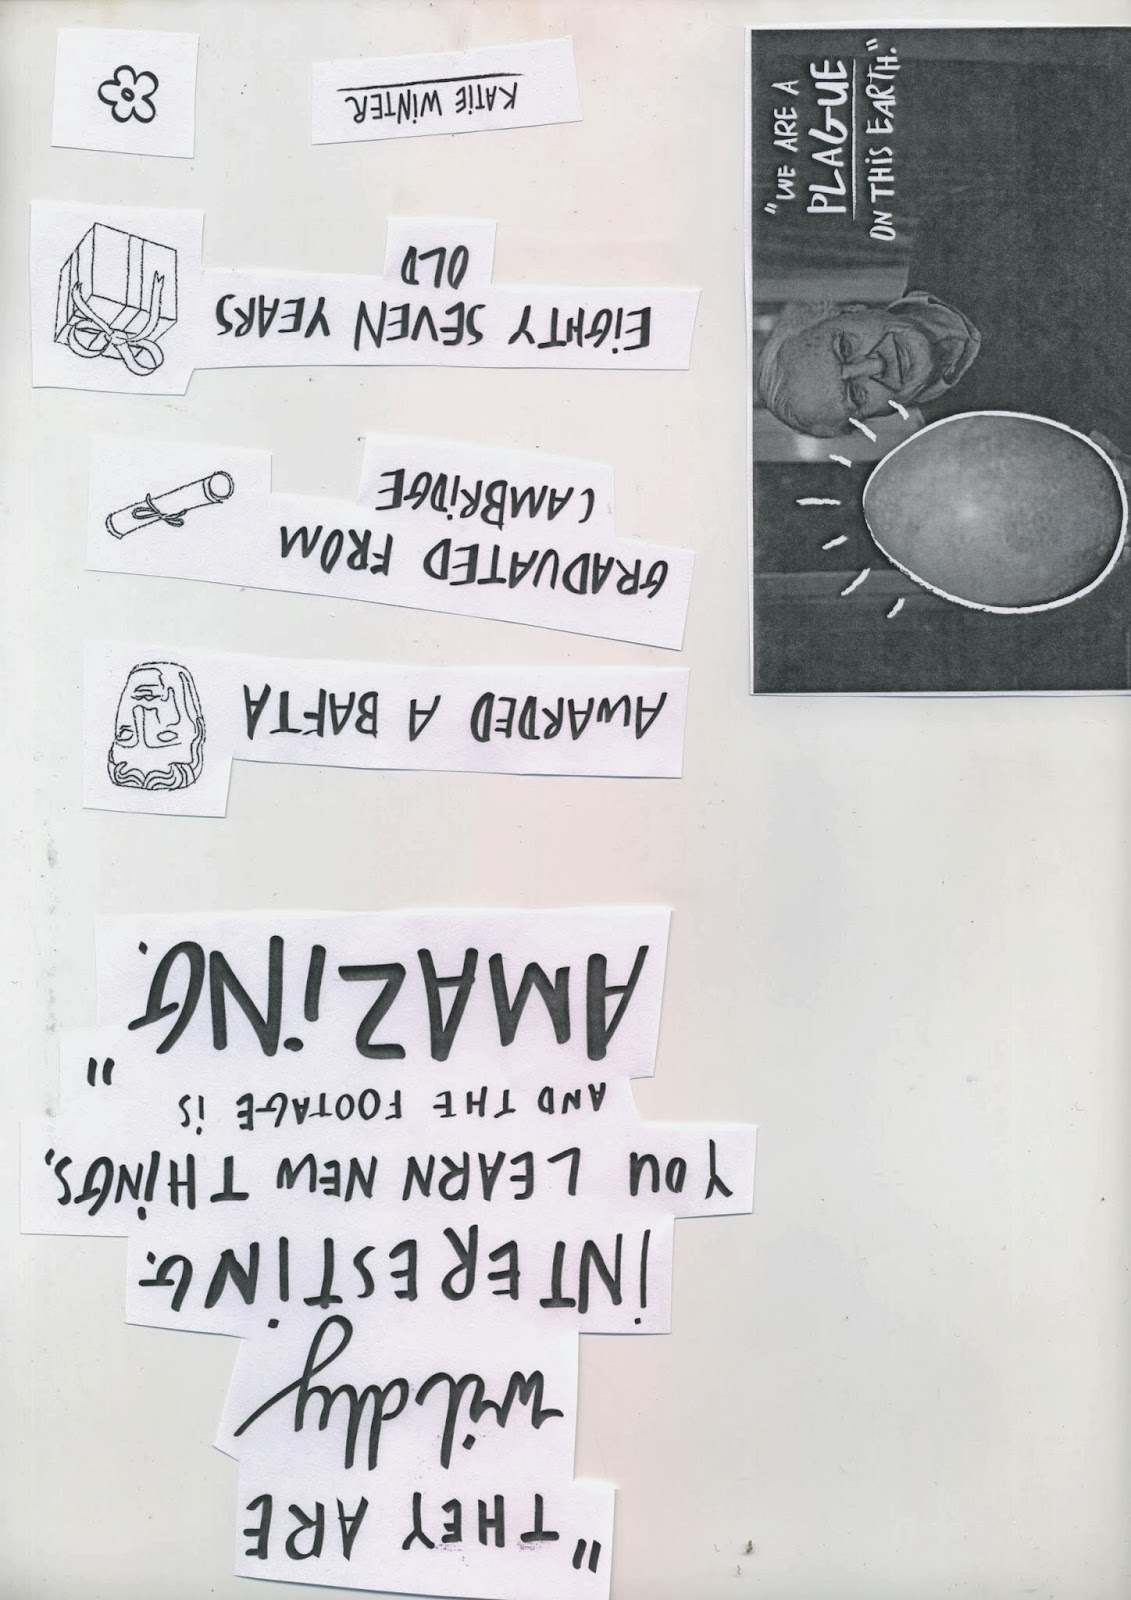 "THEY ARE
wildly
INTERESTING.
YOU LEARN NEW THINGS,
AND THE FOOTAGE IS
AMAZING."
AWARDED A BAFTA
GRADUATED FROM
CAMBRIDGE
EIGHTY SEVEN YEARS
OLD
KATIE WINTER
"WE ARE A
PLAGUE
ON THIS EARTH."